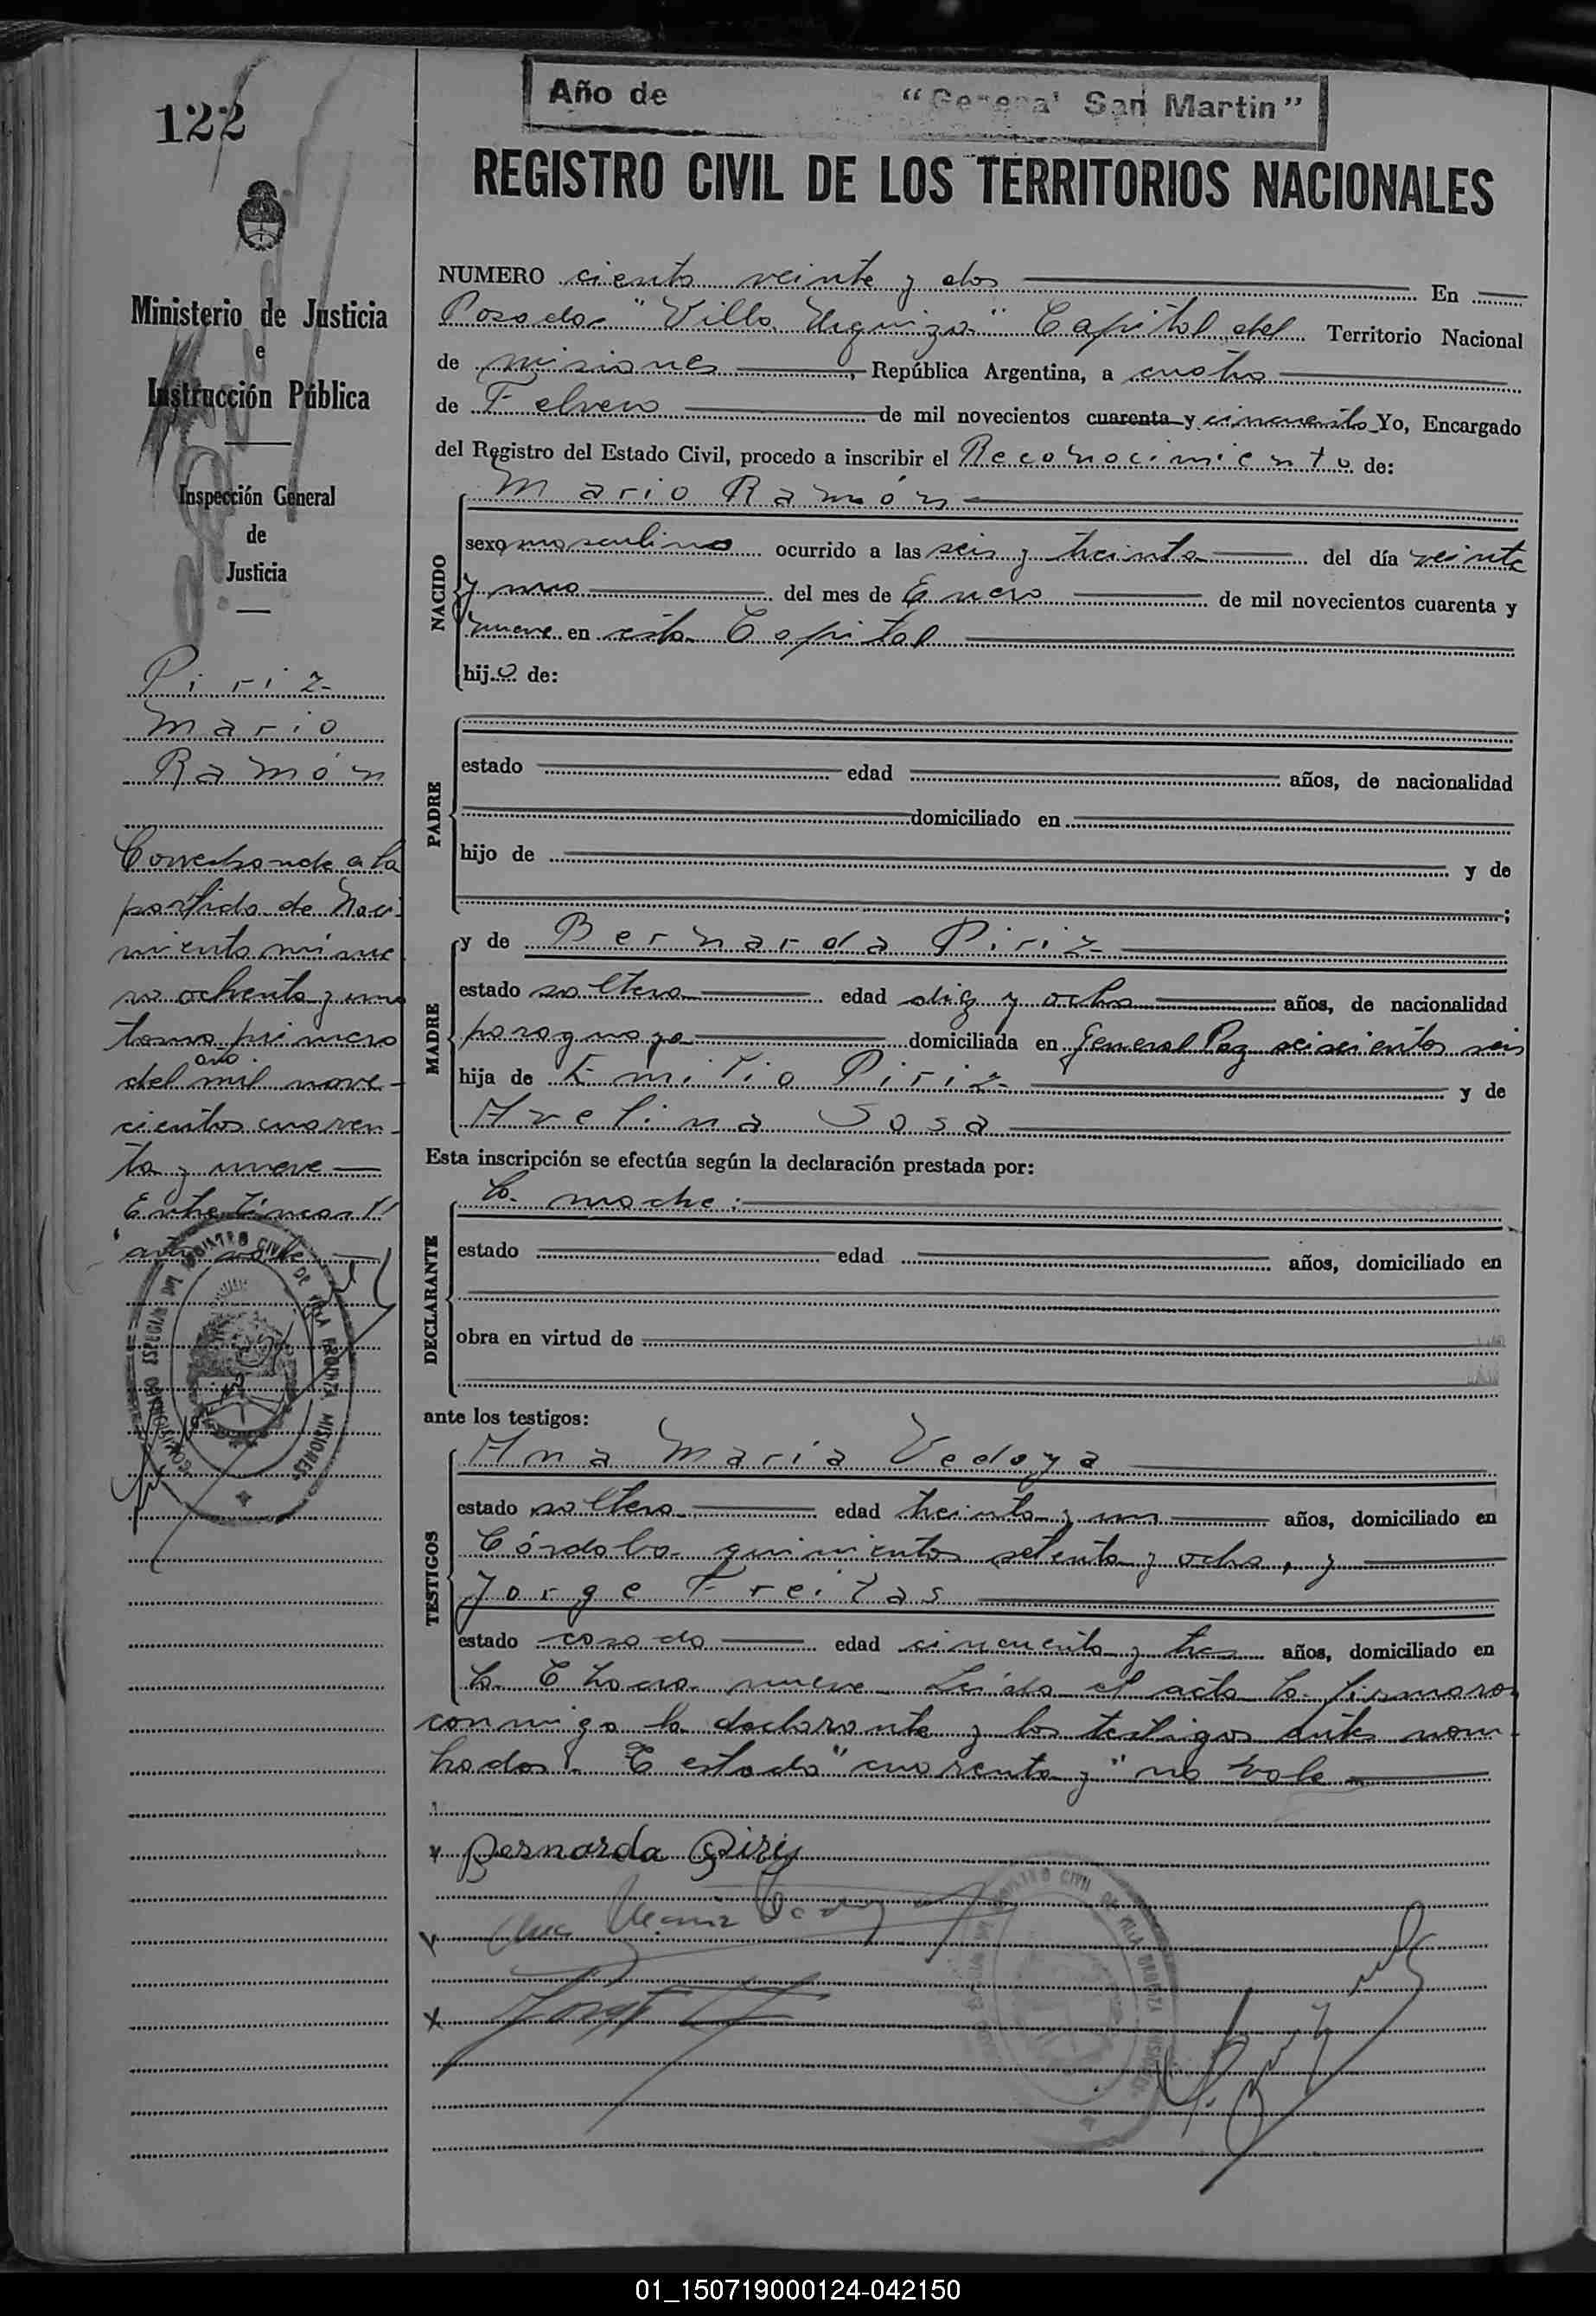 122
Año de "General San Martin"
REGISTRO CIVIL DE LOS TERRITORIOS NACIONALES
Ministerio de Justicia
e
Instrucción Pública
Inspección General
de
Justicia
Piriz
Mario
Ramón
Corresponde a la
partida de Naci-
miento núme
ro ochenta y uno
tomo primero
año
del mil nove-
cientos cuaren-
ta y nueve
Entre líneas "
año vale
NUMERO ciento veinte y dos En
Posadas "Villa Urquiza" Capital del Territorio Nacional
de misiones, República Argentina, a cuatro
de Febrero de mil novecientos cuarenta y cincuenta Yo, Encargado
del Registro del Estado Civil, procedo a inscribir el Reconocimiento de:
NACIDO
Mario Ramón
sexo masculino ocurrido a las seis y treinta del día veinte
y uno del mes de Enero de mil novecientos cuarenta y
nueve en esta Capital
hijo de:
PADRE
estado edad años, de nacionalidad
domiciliado en
hijo de y de
;
MADRE
y de Bernarda Piriz
estado soltera edad diez y ocho años, de nacionalidad
paraguaya domiciliada en General Paz seiscientos seis
hija de Emilio Piriz y de
Avelina Sosa
Esta inscripción se efectúa según la declaración prestada por:
DECLARANTE
la madre:
estado edad años, domiciliado en
obra en virtud de
ante los testigos:
TESTIGOS
Ana María Vedoya
estado soltera edad treinta y un años, domiciliado en
Córdoba quinientos setenta y ocho, y
Jorge Freitas
estado casado edad cincuenta y tres años, domiciliado en
la Chacra nueve Leída el acta la firmaron
conmigo la declarante y los testigos antes nom-
brados. Testado "cuarenta y" no vale
Bernarda Piriz
Ana María Vedoya
01_150719000124-042150